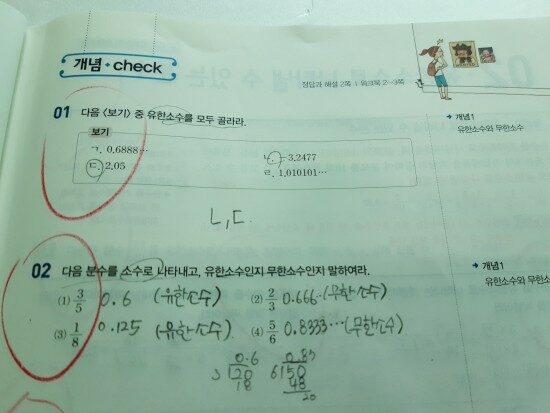 개념+check
정답과 해설 2쪽 | 워크북 2~3쪽
01 다음 <보기> 중 유한소수를 모두 골라라.
→ 개념1
유한소수와 무한소수
보기
ㄱ. 0.6888⋯ ㄴ. -3.2477
ㄷ. 2.05 ㄹ. 1.010101⋯
ㄴ, ㄷ.
02 다음 분수를 소수로 나타내고, 유한소수인지 무한소수인지 말하여라.
→ 개념1
유한소수와 무한소
(1) 3/5 0.6 (유한소수) (2) 2/3 0.666⋯(무한소수)
(3) 1/8 0.125 (유한소수) (4) 5/6 0.8333⋯(무한소수)
0.6 0.83
3 20 6 50
18 48
20